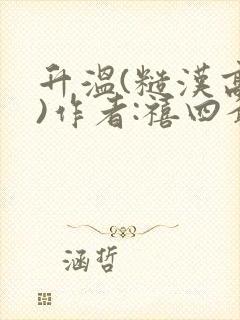 升温(糙漢高
)作者:禧四
涵哲